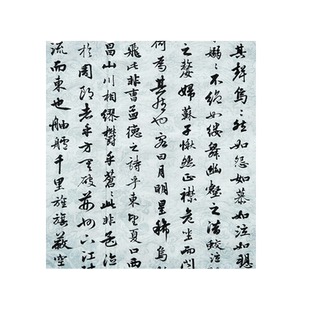 其聲嗚〻然如怨如慕如泣如
嫋〻不絕如縷舞幽壑之潛蛟泣
之嫠婦蘇子愀然正襟危坐而問
何為其然也客曰月明星稀烏
飛此非曹孟德之詩乎東望夏口西
昌山川相繆鬱乎蒼〻此非孟德
於周郎者乎方其破荊州下江陵
流而東也舳艫千里旌旗蔽空